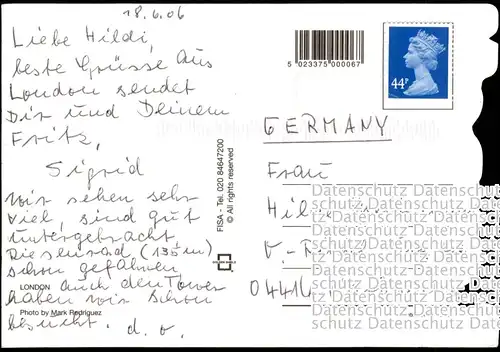 18.6.06
Liebe Hildi,
beste Grüsse aus
London sendet
Dir und Deinem
Fritz,
Sigrid
Wir sehen sehr
viel, sind gut
untergebracht
Riesenrad (135 m)
schon gefahren
auch den Tower
haben wir schon
besucht. d. o.
LONDON
Photo by Mark Rodriguez
FISA - Tel. 020 84647200
© All rights reserved
5 023375 000067
44P
GERMANY
Frau
Hil
04416
Datenschutz Datenschutz
Datenschutz Datenschutz
Datenschutz Datenschutz
Datenschutz Datenschutz
Datenschutz Datenschutz
Datenschutz Datenschutz
Datenschutz Datenschutz
Datenschutz Datenschutz
Datenschutz Datenschutz
Datenschutz Datenschutz